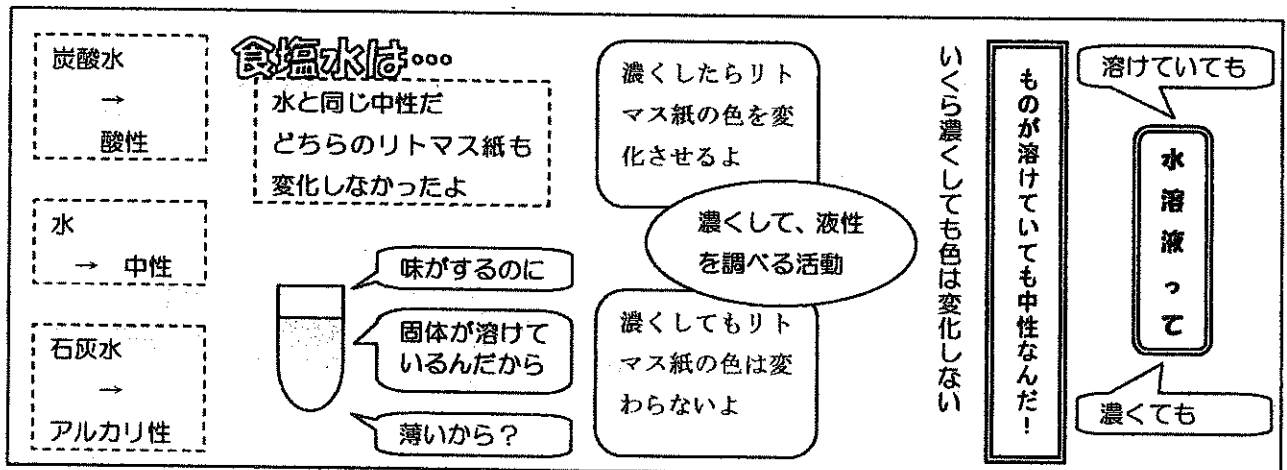 炭酸水
→
酸性
水
→ 中性
石灰水
→
アルカリ性
食塩水は…
水と同じ中性だ
どちらのリトマス紙も
変化しなかったよ
味がするのに
固体が溶けて
いるんだから
薄いから？
濃くしたらリト
マス紙の色を変
化させるよ
濃くして、液性
を調べる活動
濃くしてもリト
マス紙の色は変
わらないよ
いくら濃くしても色は変化しない
ものが溶けていても中性なんだ！
溶けていても
水溶液って
濃くても